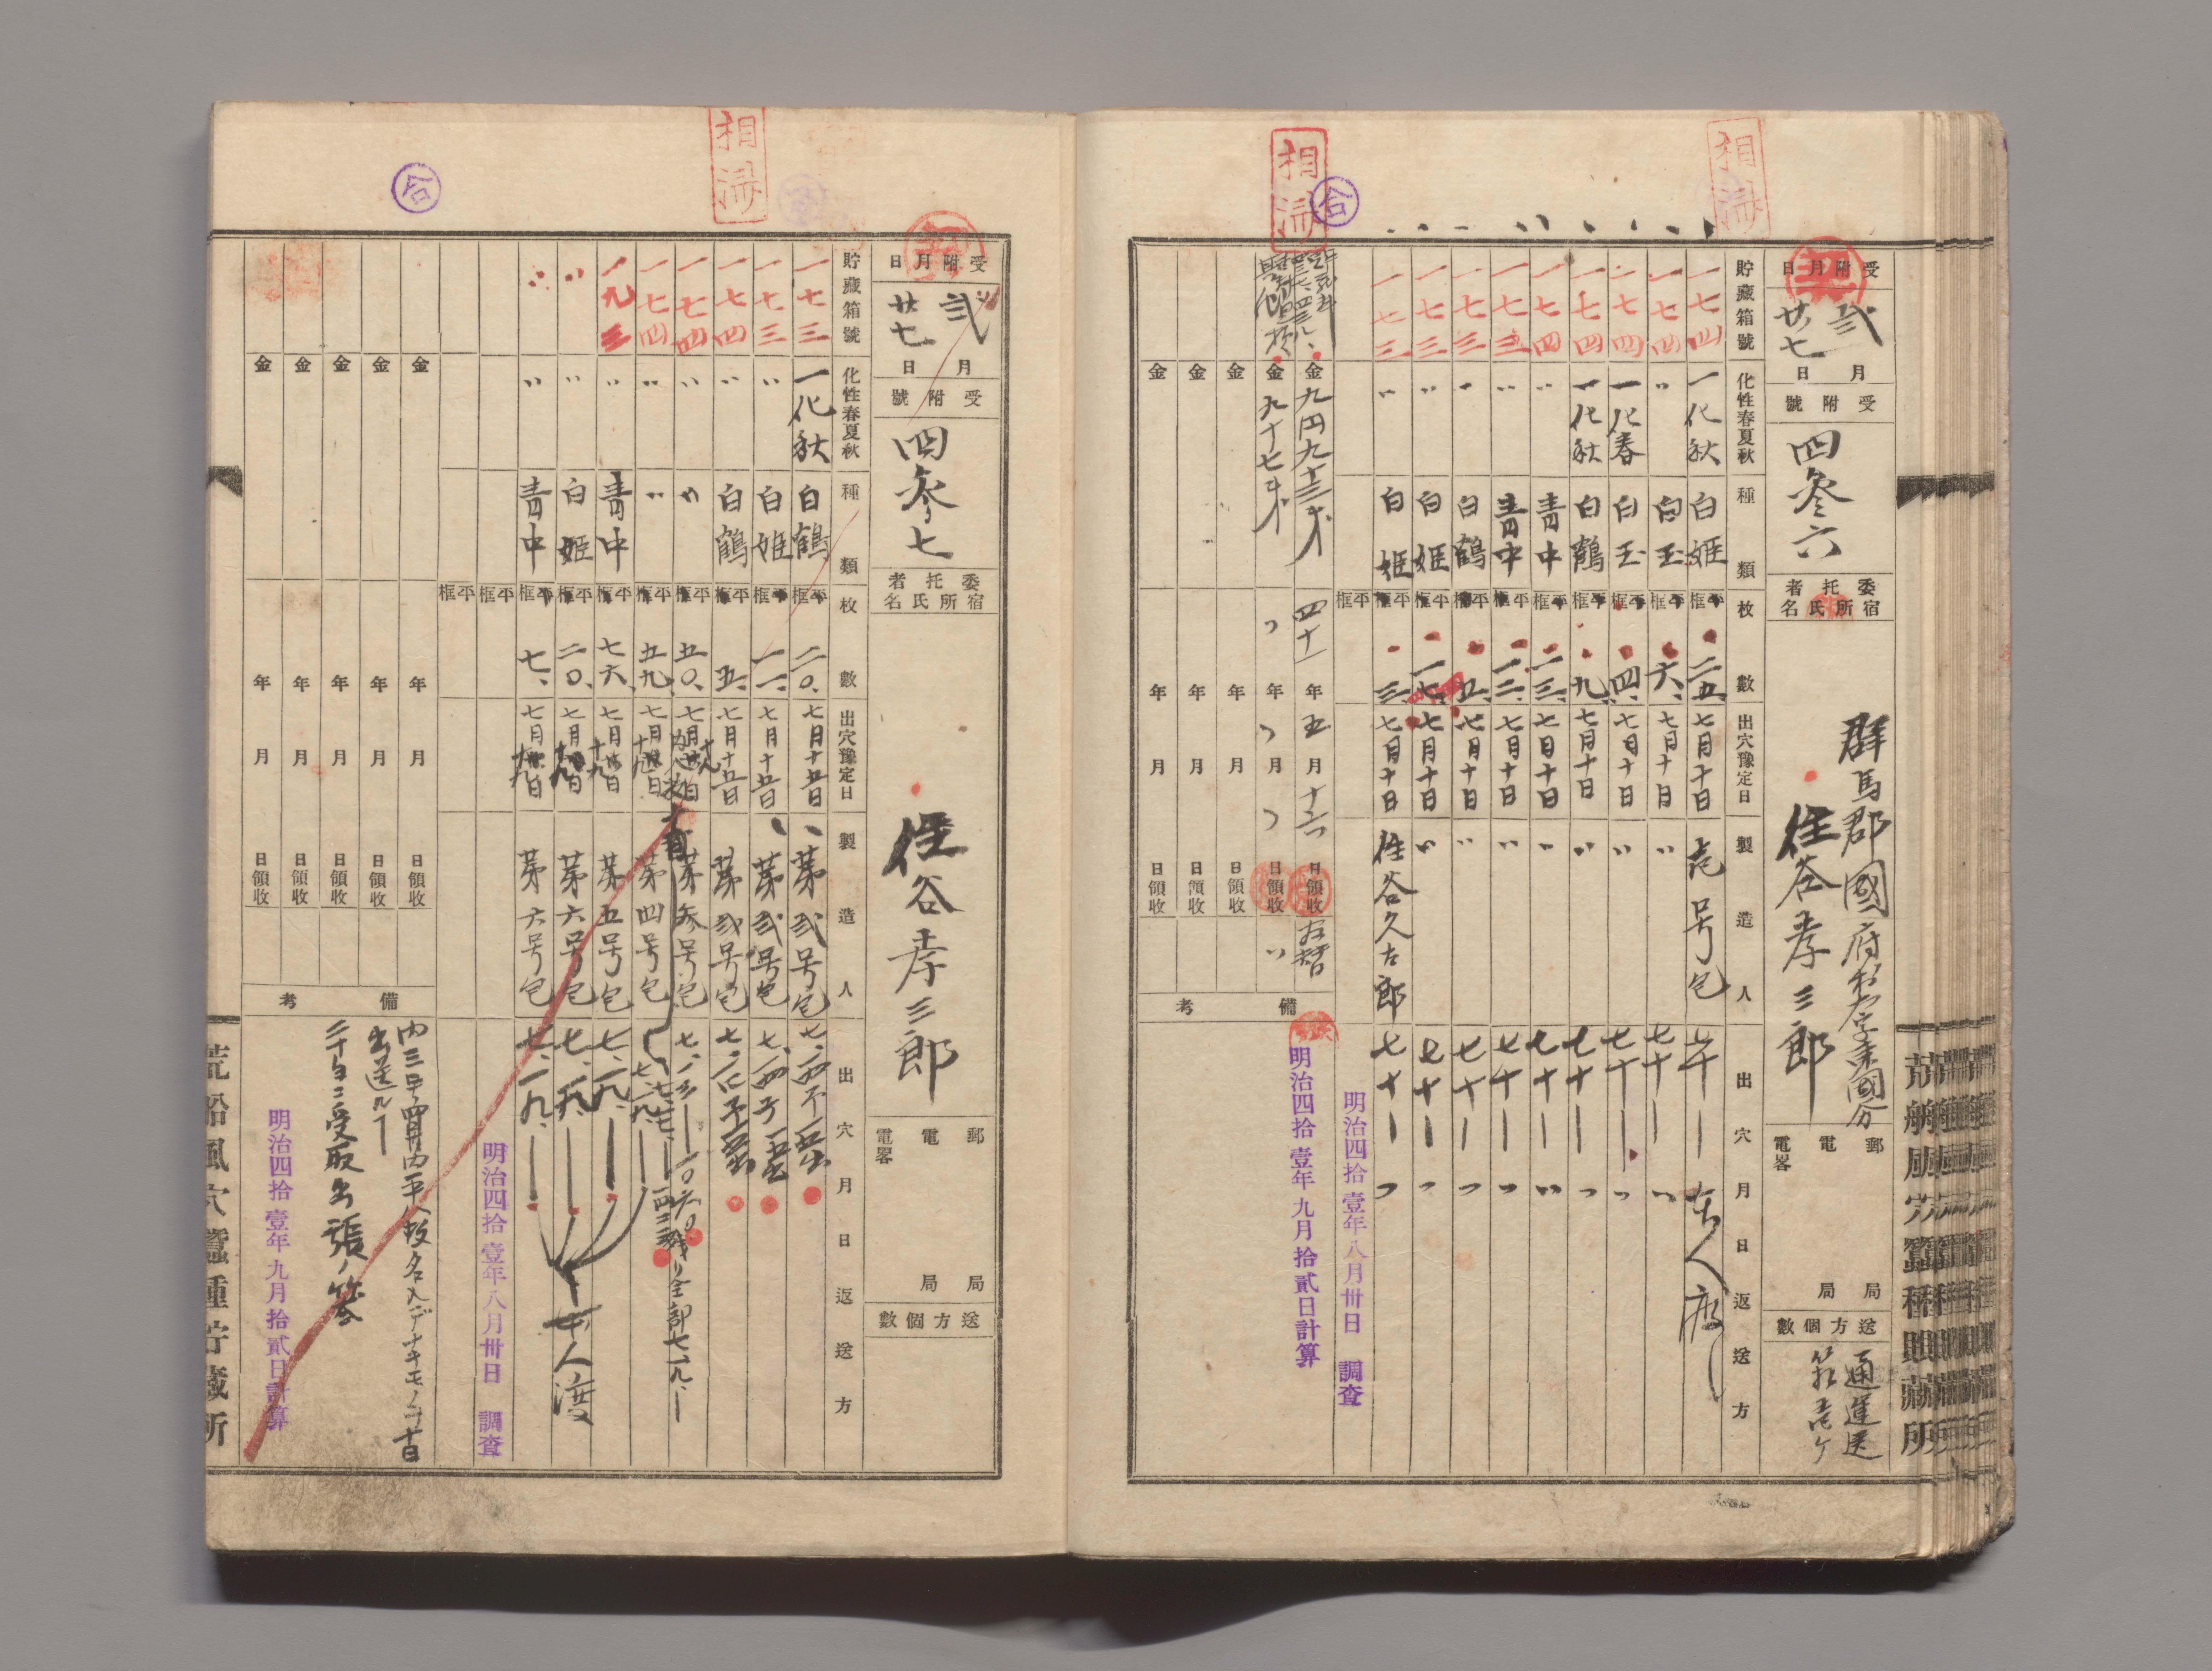 相濟
合
相濟
受附月日
弐月廿七日
受附號
四参六
委托者
宿所氏名
群馬郡國府村大字東國分
住谷孝三郎
郵電
電畧
局
局
送方個數
通運送
箱壱ケ
貯藏箱號
化性春夏秋
種類
枚數
出穴豫定日
製造人
出穴月日返送方
一七四 一化秋 白姫 平框 二五、 七月十日 壱号包 七十一 本人渡
一七四 〃 白玉 平框 六、 七月十日 〃 七十一 〃
一七四 一化春 白玉 平框 四、 七月十日 〃 七十一 〃
一七四 一化秋 白鶴 平框 九、 七月十日 〃 七十一 〃
一七四 〃 青中 平框 一三、 七月十日 〃 七十一 〃
一七三 〃 青中 平框 一二、 七月十日 〃 七十一 〃
一七三 〃 白鶴 平框 五、 七月十日 〃 七十一 〃
一七三 〃 白姫 平框 七月十日 〃 七十一 〃
一七三 〃 白姫 平框 三、 七月十日 住谷久吉郎 七十一 〃
平框
明治四拾壹年八月卅日 調査
金九円九十三戋 四十一年五月十六日領收
金九十七戋 〃年〃月〃日領收 〃
金 年 月 日領收
金 年 月 日領收
金 年 月 日領收
備考
明治四拾壹年九月拾貳日計算
荒船風穴蠶種貯藏所
相濟
合
受附月日
弐月廿七日
受附號
四参七
委托者
宿所氏名
住谷孝三郎
郵電
電畧
局
局
送方個數
貯藏箱號
化性春夏秋
種類
枚數
出穴豫定日
製造人
出穴月日返送方
一七三 一化秋 白鶴 平框 二〇、 七月十五日 第弐号包
一七三 〃 白姫 平框 一一、 七月十五日 第弐号包
一七四 〃 白鶴 平框 五、 七月十五日 第弐号包
一七四 〃 〃 平框 五〇、 第参号包
一七四 〃 〃 平框 五九、 第四号包
一九三 〃 青中 平框 七六、 第五号包 七、一九、
〃 〃 白姫 平框 二〇、 第六号包 七、一九、
〃 〃 青中 平框 七、 第六号包 七、一九、
残り全部七、一九、
本人渡
平框
平框
明治四拾壹年八月卅日 調査
金 年 月 日領收
金 年 月 日領收
金 年 月 日領收
金 年 月 日領收
金 年 月 日領收
備考
出送ル
受取出張ノ筈
明治四拾壹年九月拾貳日計算
荒船風穴蠶種貯藏所